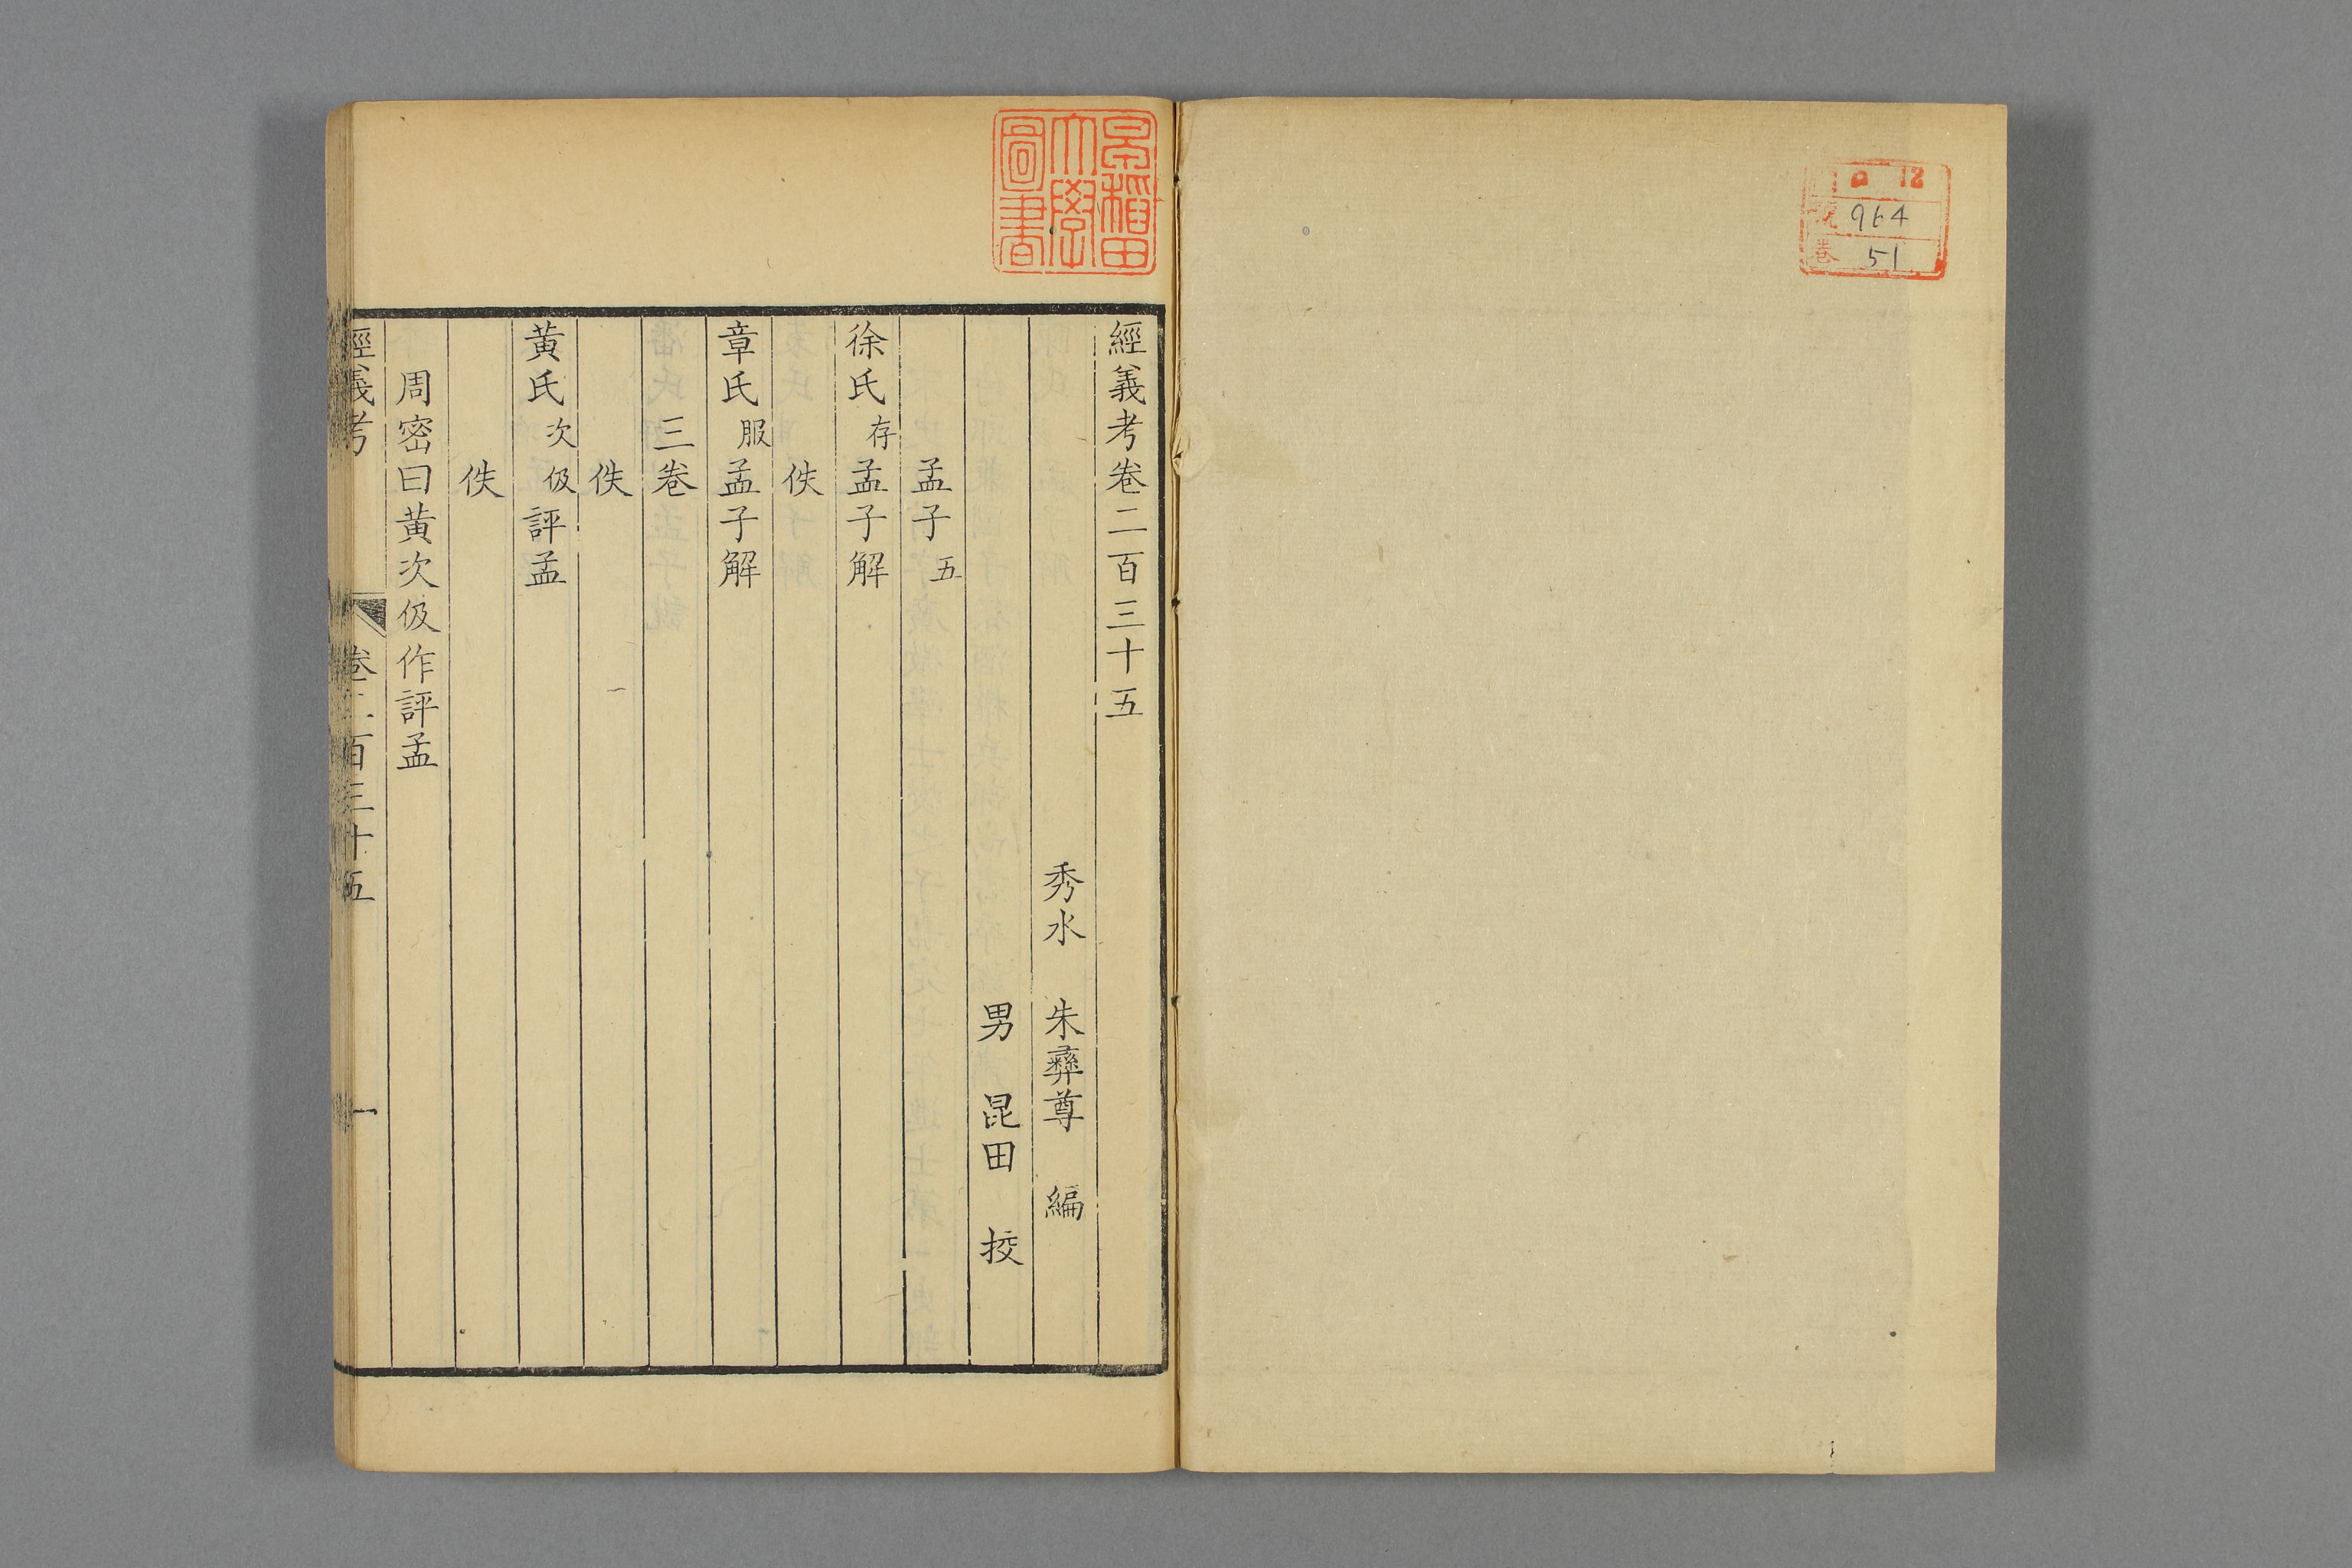 ロ 12
號 964
卷 51
早稻田
大學
圖書
經義考卷二百三十五
秀水 朱彝尊 編
男 昆田 挍
孟子 五
徐氏 存 孟子解
佚
章氏 服 孟子解
三卷
佚
黃氏 次伋 評孟
佚
周密曰黃次伋作評孟
經義考 卷二百三十五 一